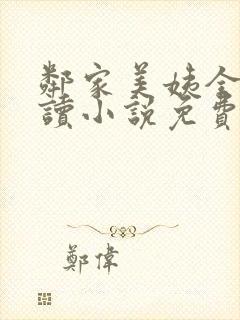 鄰家美姨全
讀小說免費
鄭偉